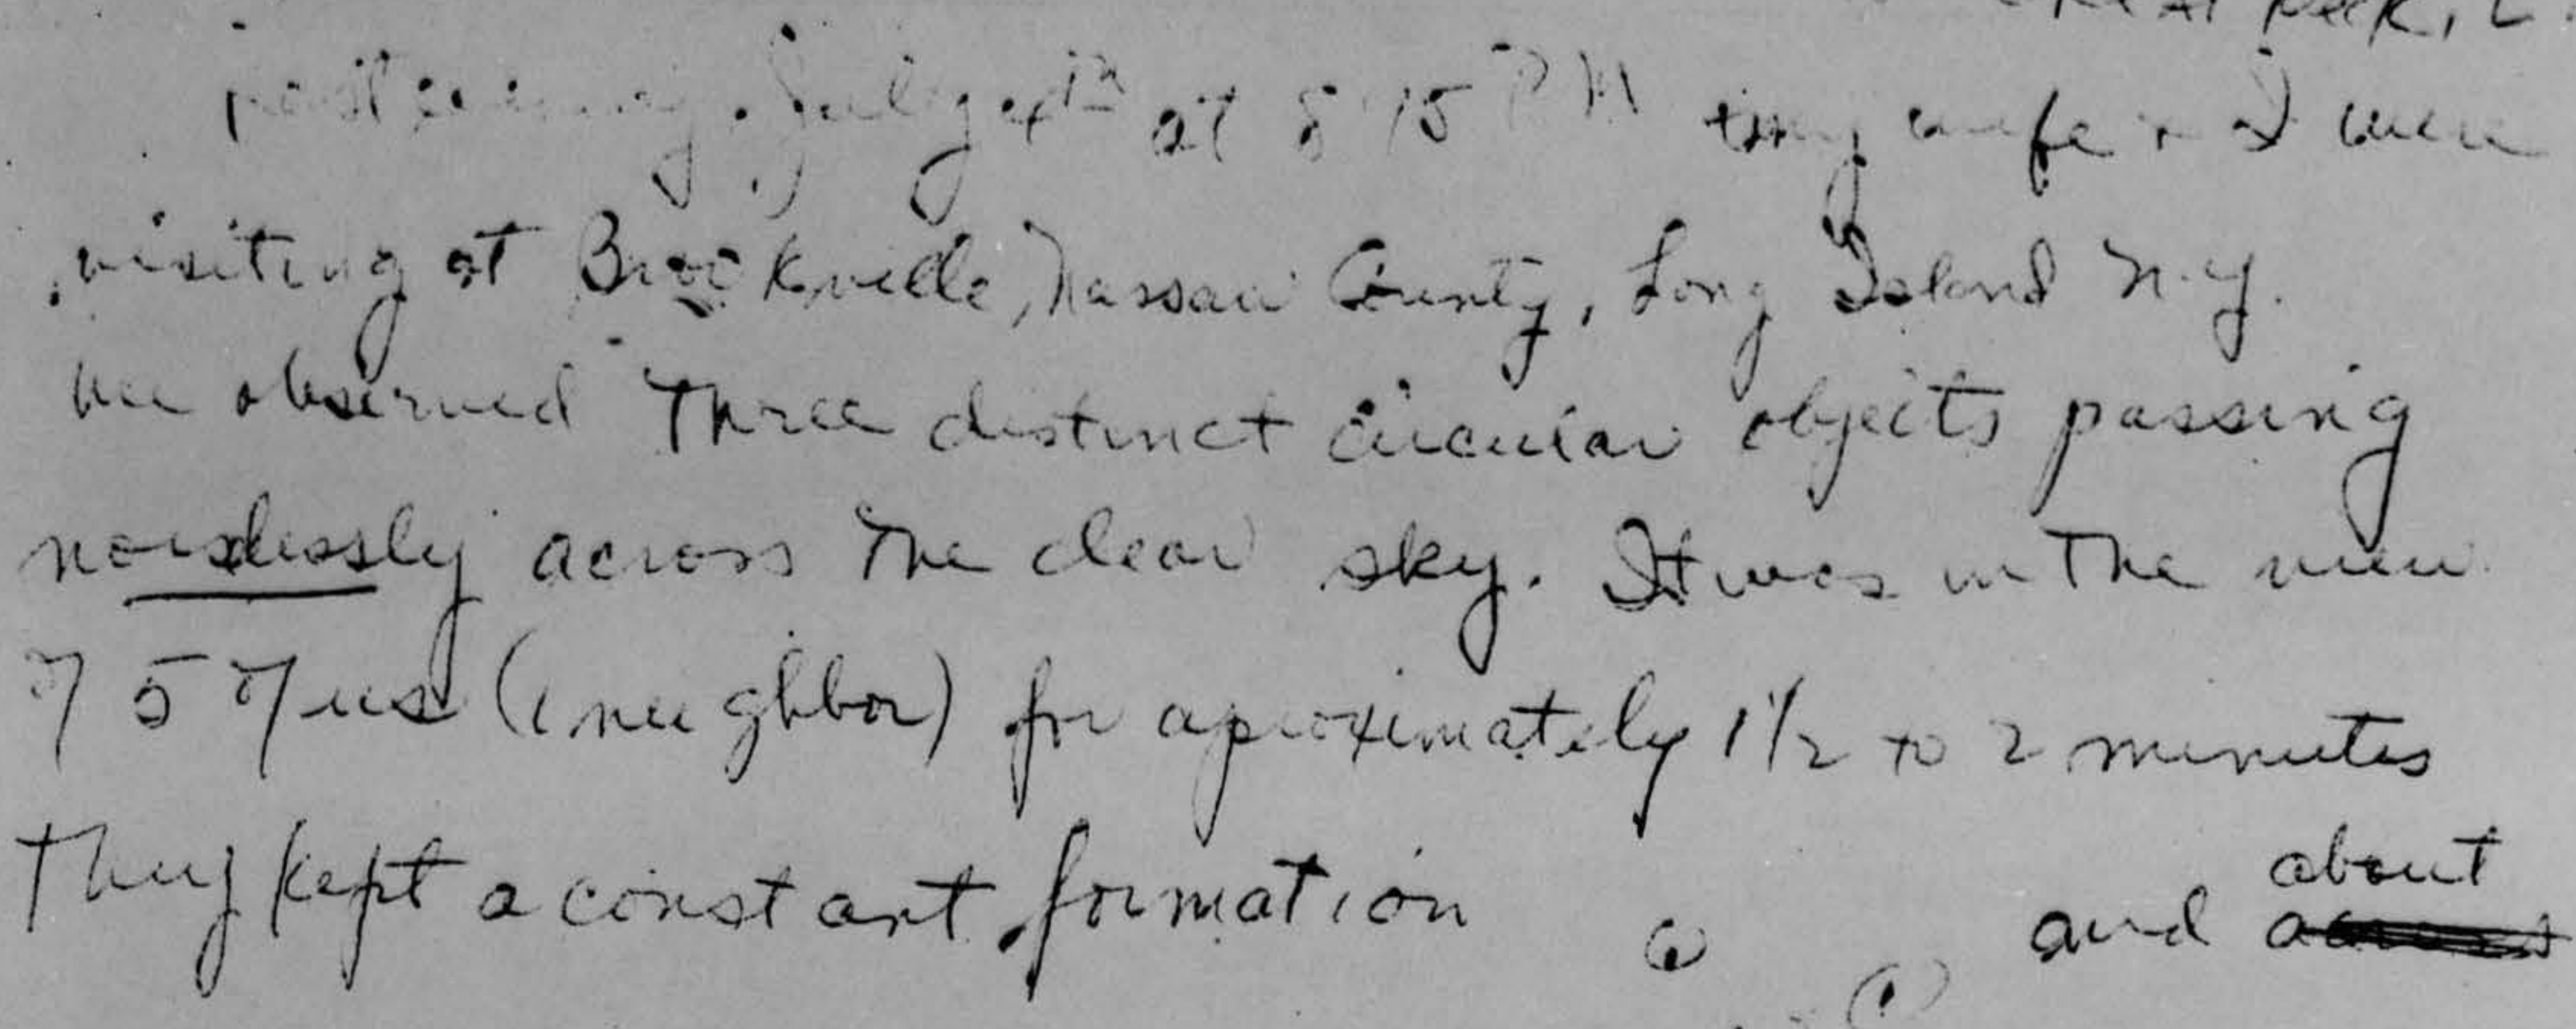 Neck, L
past evening, July 4th at 8 15 PM my wife + I were
visiting at Brookville, Nassau County, Long Island N.Y.
We observed Three distinct circular objects passing
noiselessly across The clear sky. It was in The view
of 5 of us (1 neighbor) for aproximately 1 1/2 to 2 minutes
They kept a constant formation and about